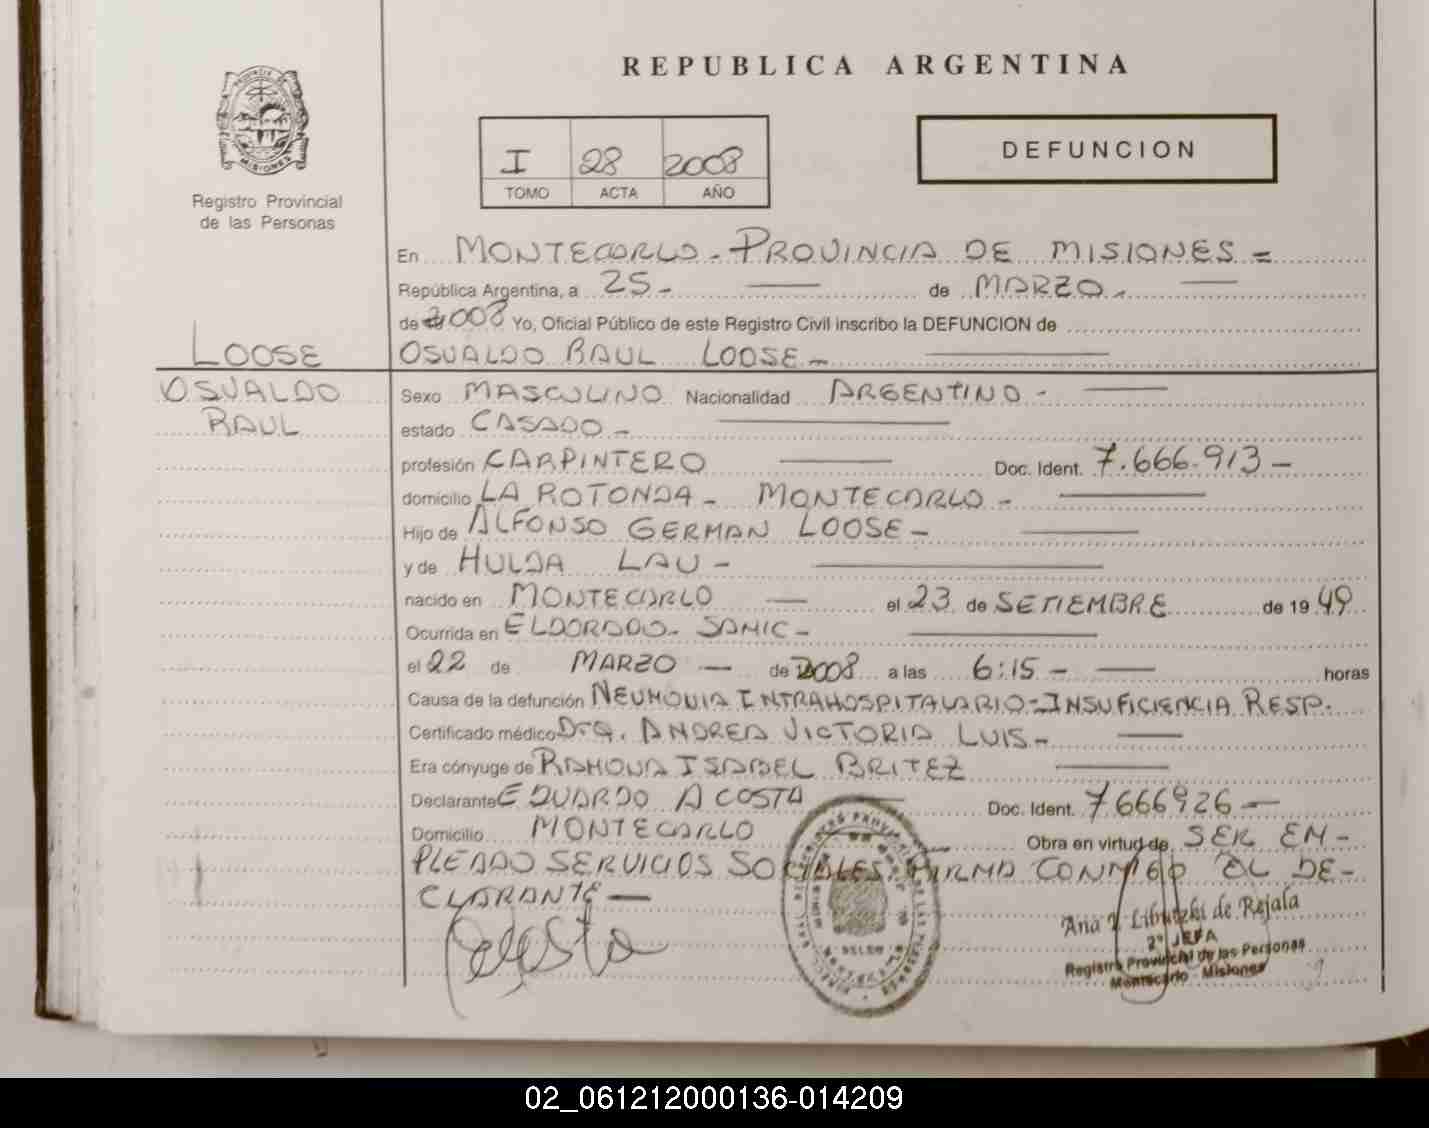 REPUBLICA ARGENTINA
PROVINCIA DE
MISIONES
Registro Provincial
de las Personas
I 28 2008
TOMO ACTA AÑO
DEFUNCION
En MONTECARLO - PROVINCIA DE MISIONES =
República Argentina, a 25 - de MARZO -
de 2008 Yo, Oficial Público de este Registro Civil inscribo la DEFUNCION de
LOOSE
OSVALDO RAUL LOOSE -
OSVALDO
RAUL
Sexo MASCULINO Nacionalidad ARGENTINO -
estado CASADO -
profesión CARPINTERO Doc. Ident. 7.666.913 -
domicilio LA ROTONDA - MONTECARLO -
Hijo de ALFONSO GERMAN LOOSE -
y de HULDA LAU -
nacido en MONTECARLO - el 23 de SETIEMBRE de 1949
Ocurrida en ELDORADO - SAMIC -
el 22 de MARZO - de 2008 a las 6:15 - horas
Causa de la defunción NEUMONIA INTRAHOSPITALARIO - INSUFICIENCIA RESP.
Certificado médico Dra. ANDREA VICTORIA LUIS -
Era cónyuge de RAMONA ISABEL BRITEZ
Declarante EDUARDO ACOSTA Doc. Ident. 7666926 -
Domicilio MONTECARLO Obra en virtud de SER EM-
PLEADO SERVICIOS SOCIALES, FIRMA CONMIGO EL DE-
CLARANTE -
Acosta
Ana I. Libutzki de Rejala
2º JEFA
Registro Provincial de las Personas
Montecarlo - Misiones
02_061212000136-014209